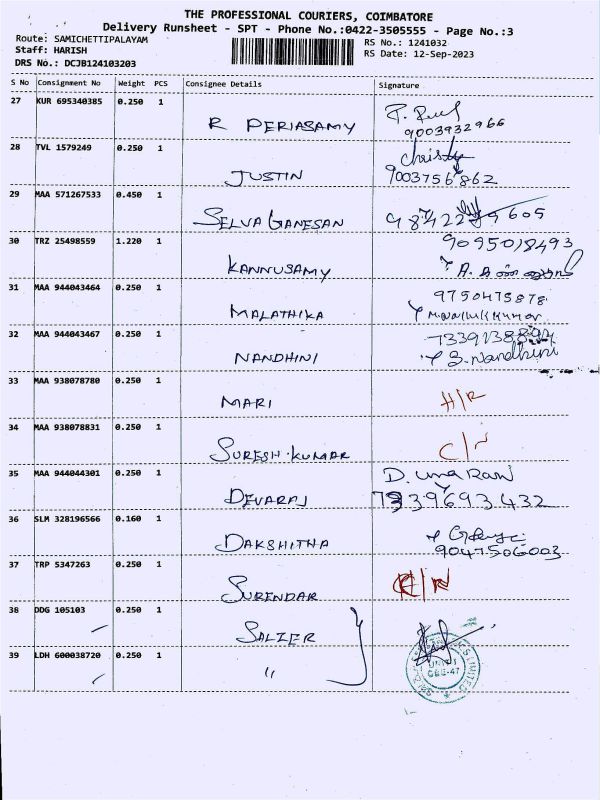 THE PROFESSIONAL COURIERS, COIMBATORE
Delivery Runsheet - SPT - Phone No.:0422-3505555 - Page No.:3
Route: SAMICHETTIPALAYAM RS No.: 1241032
Staff: HARISH RS Date: 12-Sep-2023
DRS No.: DCJB124103203
S No Consignment No Weight PCS Consignee Details Signature
27 KUR 695340385 0.250 1 R PERIASAMY
9003932966
28 TVL 1579249 0.250 1 JUSTIN Christy
9003756862
29 MAA 571267533 0.450 1 SELVA GANESAN
30 TRZ 25498559 1.220 1 KANNUSAMY 9095018493
31 MAA 944043464 0.250 1 MALATHIKA 9750475878
32 MAA 944043467 0.250 1 NANDHINI
S. Nandhini
33 MAA 938078780 0.250 1 MARI H/R
34 MAA 938078831 0.250 1 SURESH.KUMAR C/N
35 MAA 944044301 0.250 1 DEVARAJ D.
7339693432
36 SLM 328196566 0.160 1 DAKSHITHA
9047506003
37 TRP 5347263 0.250 1 SURENDAR C/N
38 DDG 105103 0.250 1 SALZER
39 LDH 600038720 0.250 1 "
UNIT-1
CBE-47
LIMITED